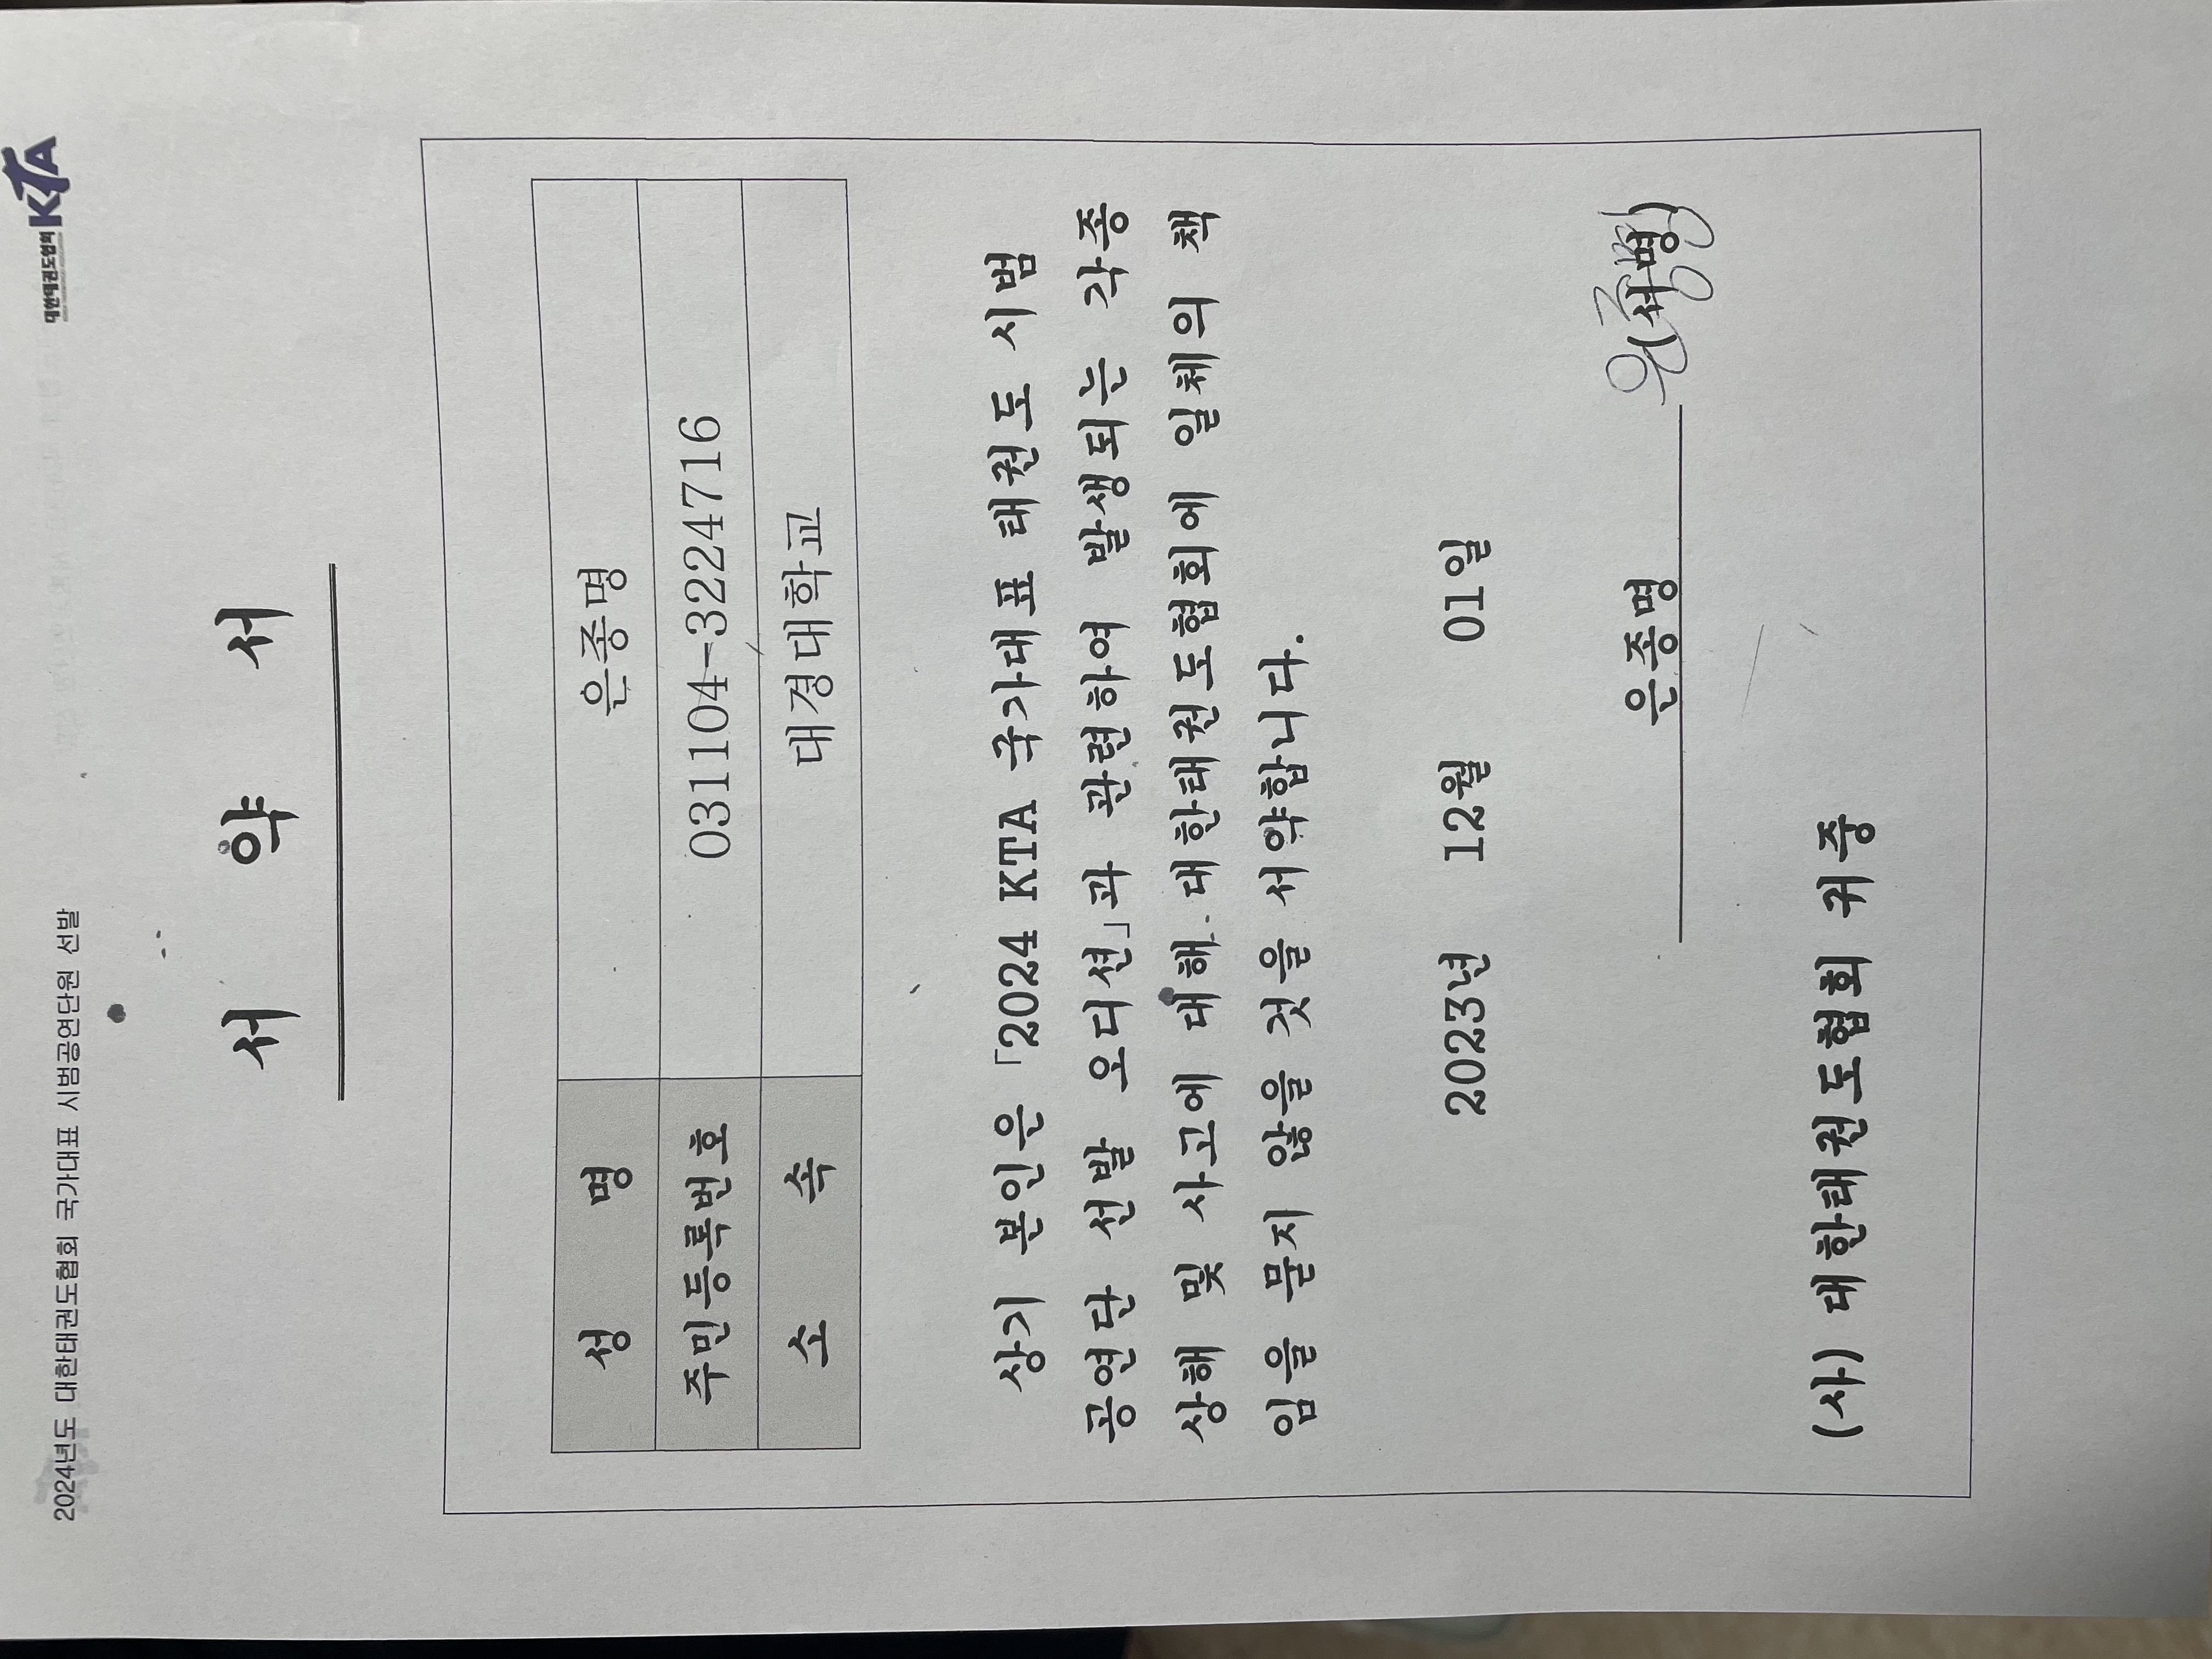 2024년도 대한태권도협회 국가대표 시범공연단원 선발
대한태권도협회 KTA
서 약 서
성 명 은종명
주민등록번호 031104-3224716
소 속 대경대학교
상기 본인은 「2024 KTA 국가대표 태권도 시범
공연단 선발 오디션」과 관련하여 발생되는 각종
상해 및 사고에 대해 대한태권도협회에 일체의 책
임을 묻지 않을 것을 서약합니다.
2023년 12월 01일
은종명 (서명) 은종명
(사) 대한태권도협회 귀중